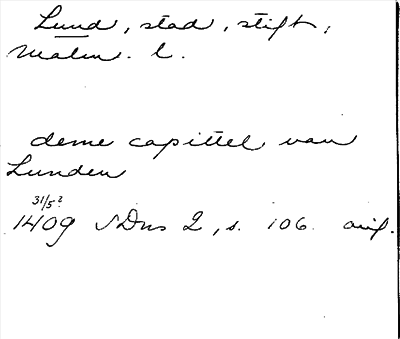 Lund, stad, stift,
Malm. l.
deme capittel van
Lunden
31/5?
1409 SDns 2, s. 106. avf.